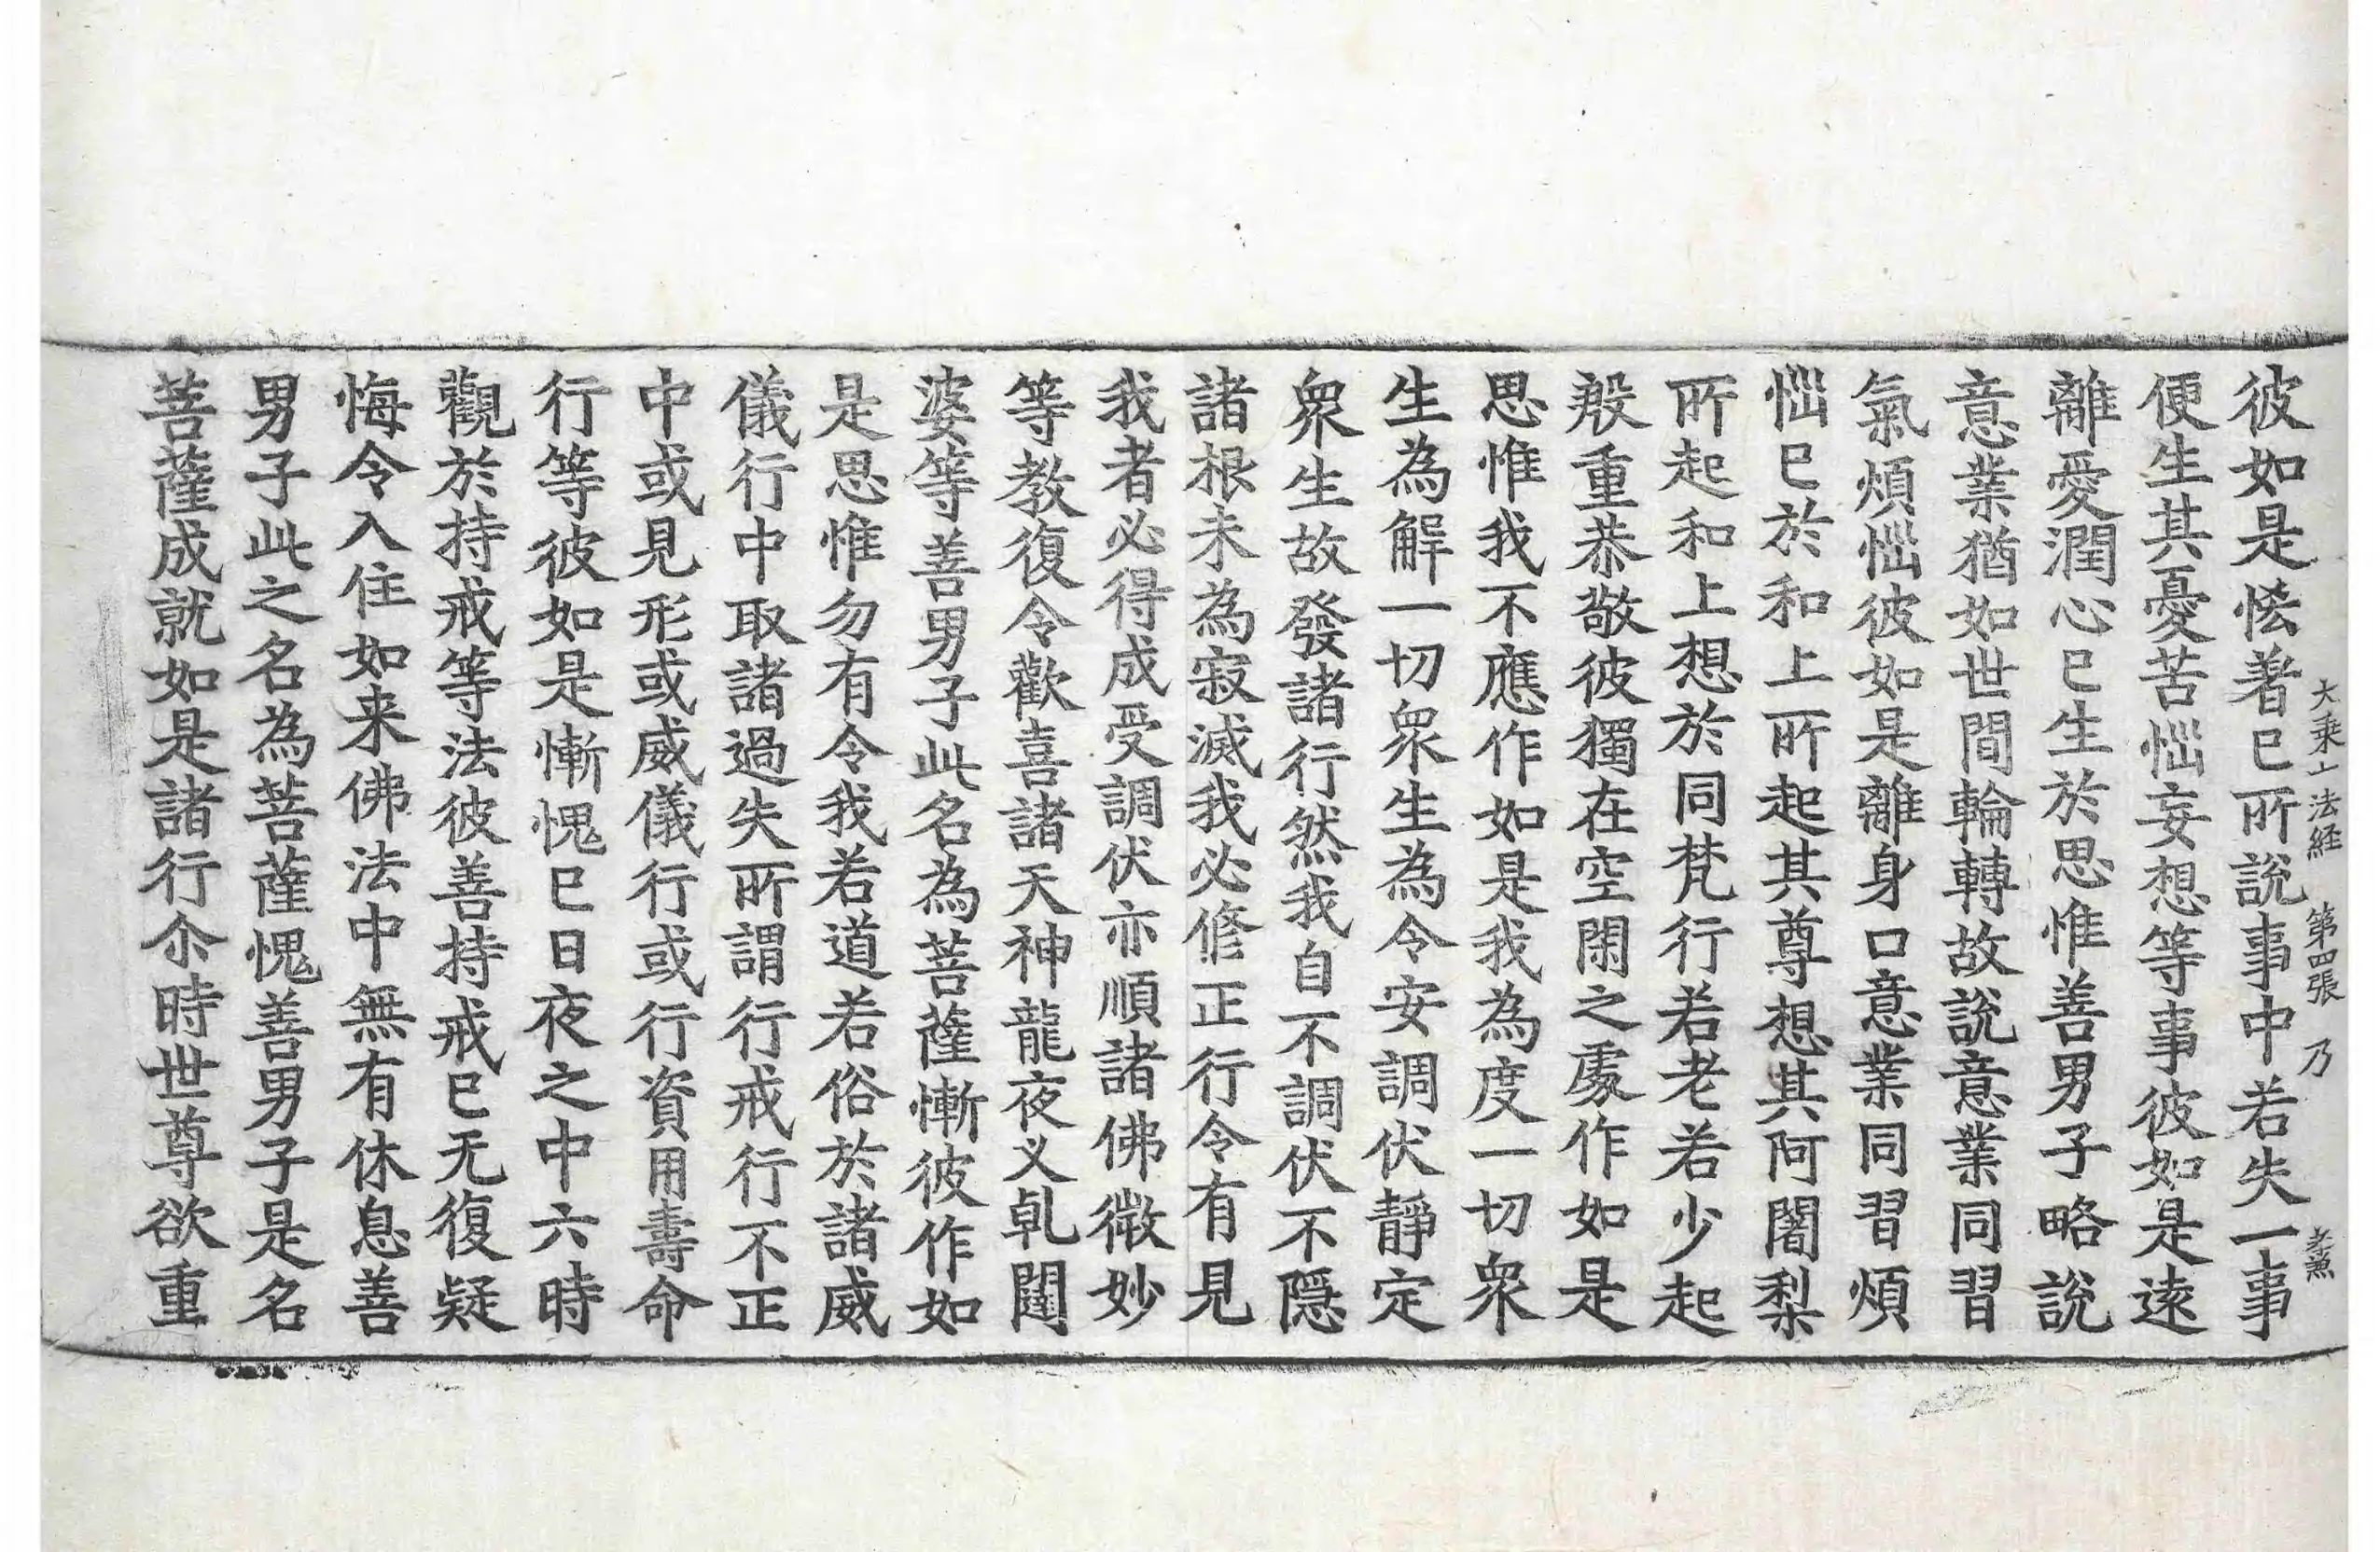 大乘十法経　第四張　乃
彼如是悋著已所說事中若失一事
便生其憂苦惱妄想等事彼如是遠
離愛潤心已生於思惟善男子略說
意業猶如世間輪轉故說意業同習
氣煩惱彼如是離身口意業同習煩
惱已於和上所起其尊想其阿闍梨
所起和上想於同梵行若老若少起
慇重恭敬彼獨在空閑之處作如是
思惟我不應作如是我為度一切衆
生為解一切衆生為令安調伏靜定
衆生故發諸行然我自不調伏不隱
諸根未為寂滅我必修正行令有見
我者必得成受調伏亦順諸佛微妙
等教復令歡喜諸天神龍夜叉乹闥
婆等善男子此名為菩薩慚彼作如
是思惟勿有令我若道若俗於諸威
儀行中取諸過失所謂行戒行不正
中或見形或威儀行或行資用壽命
行等彼如是慚愧已日夜之中六時
觀於持戒等法彼善持戒已无復疑
悔令入住如来佛法中無有休息善
男子此之名為菩薩愧善男子是名
菩薩成就如是諸行尒時世尊欲重